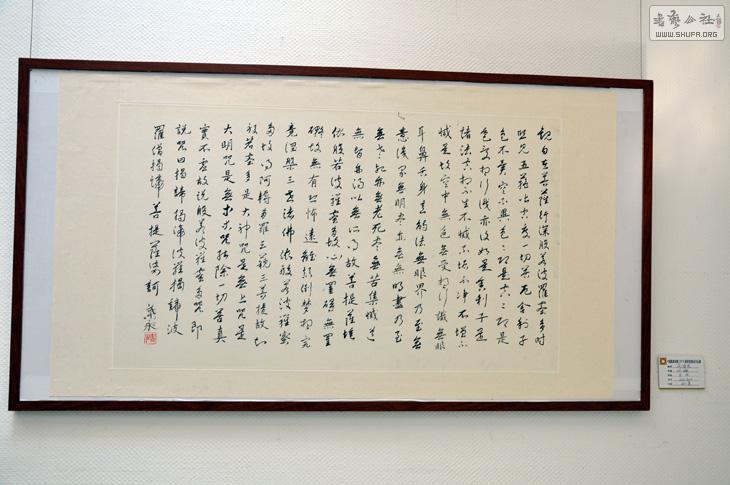 觀自在菩薩行深般若波羅蜜多時
照見五蘊皆空度一切苦厄舍利子
色不異空空不異色色即是空空即是
色受想行識亦復如是舍利子是
諸法空相不生不滅不垢不淨不增不
減是故空中無色無受想行識無眼
耳鼻舌身意 無眼界乃至無
意識界無無明亦無無明盡乃至
無老死亦無老死盡無苦集滅道
無智亦無得以無所得故菩提薩埵
依般若波羅蜜多故心無罣礙無罣
礙故無有恐怖遠離顛倒夢想究
竟涅槃三世諸佛依般若波羅蜜
多故得阿耨多羅三藐三菩提故知
般若 多是大神咒是無上咒是
大明咒是無 咒能除一切苦真
實不虛故說般若波羅蜜多咒即
說咒曰揭諦揭諦波羅揭諦波
羅僧揭諦菩提薩婆訶
書法公社
WWW.SHUFA.ORG